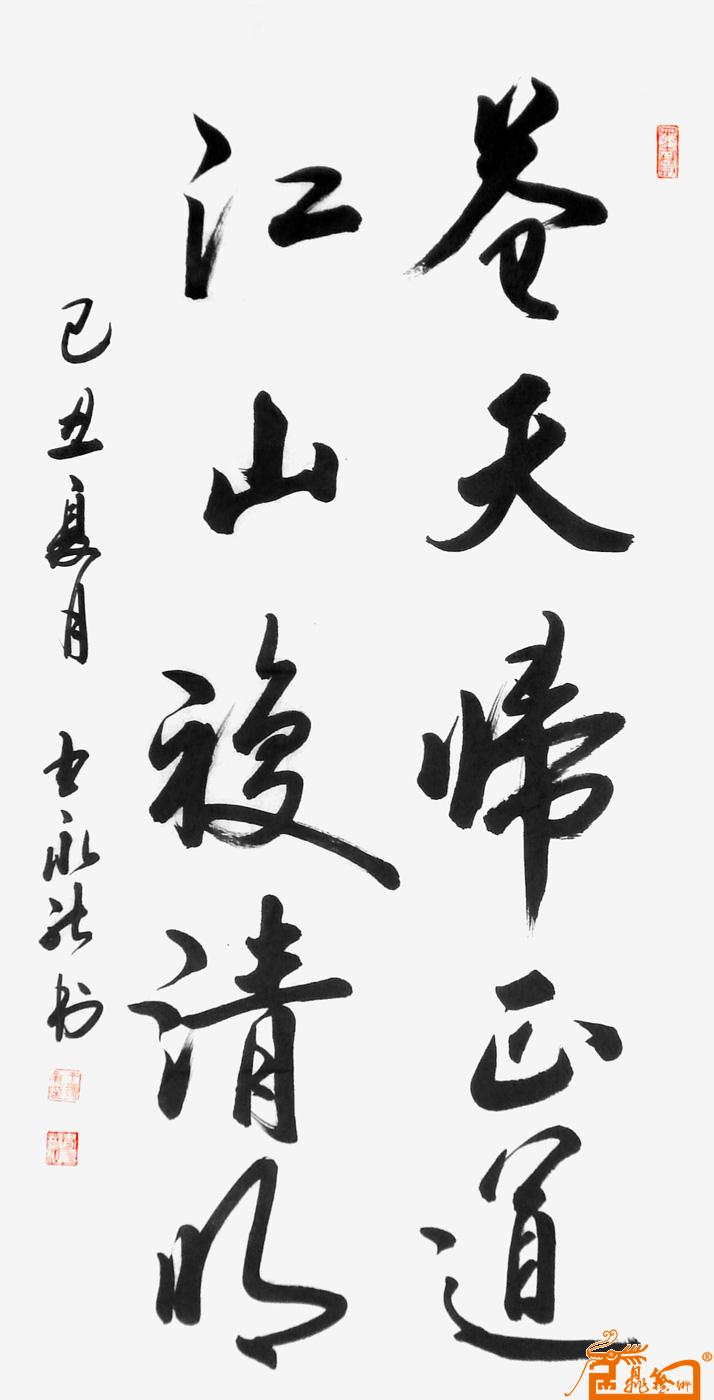 苍天归正道
江山複清明
己丑夏月 永强书